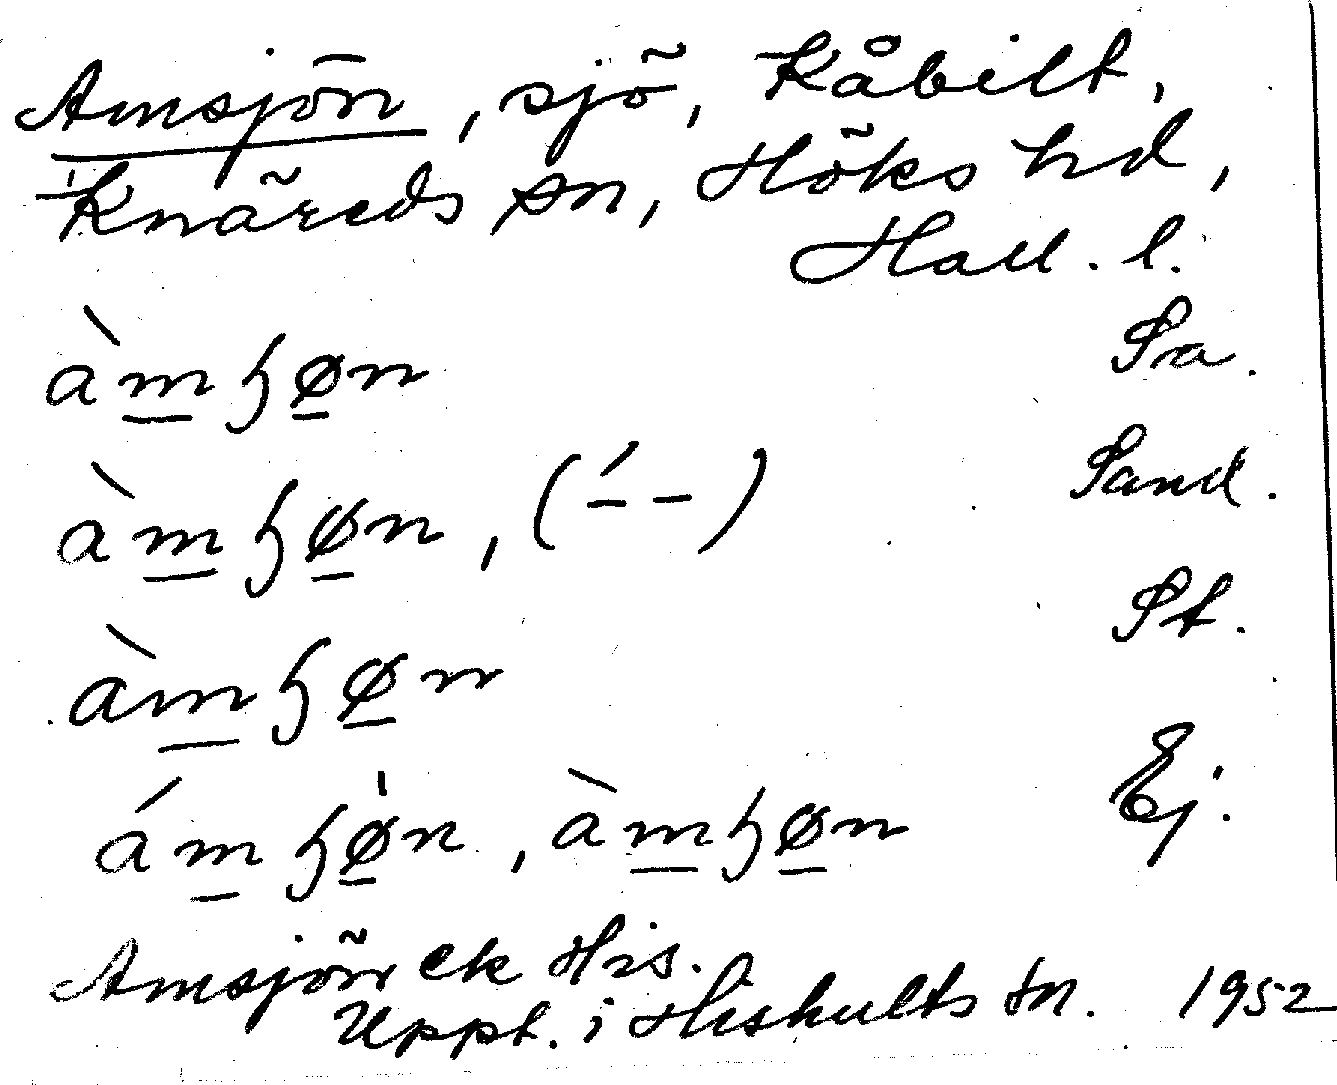 Amsjön, sjö, Kåbilt,
Knäreds sn, Höks hd,
Hall. l.
àmɧøn Sa.
àmɧøn, (´– –) Sand.
àmɧøn St.
ámɧø̀n, àmɧøn Ej.
Amsjön ek His.
Uppt. i Hishults sn. 1952